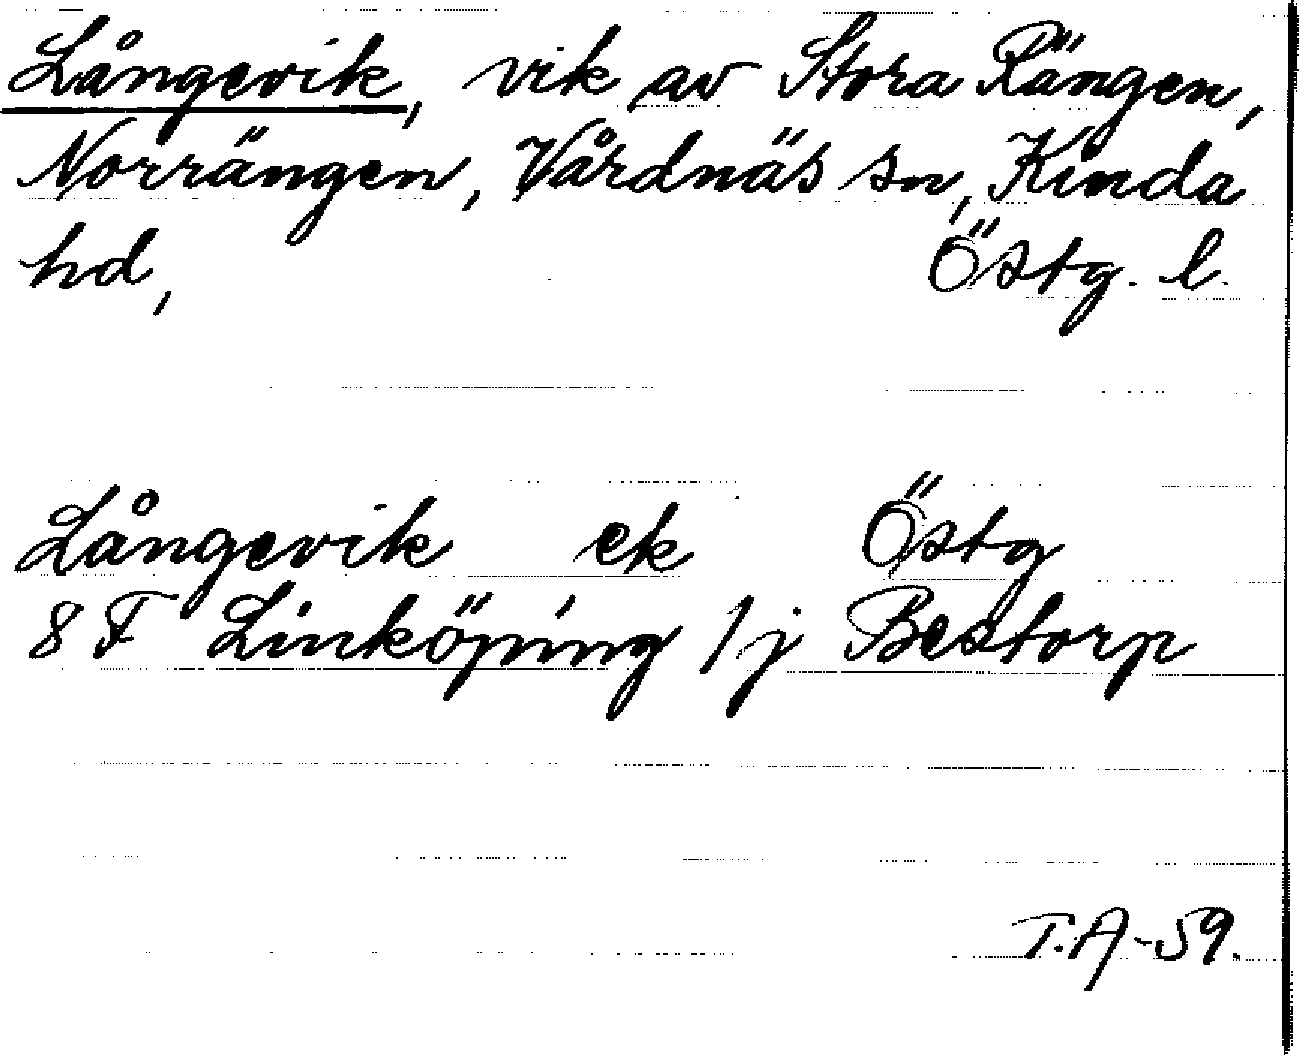 Långevik, vik av Stora Rängen,
Norrängen, Vårdnäs sn, Kinda
hd, Östg. l.
Långevik ek Östg
8 F Linköping 1 j Bestorp
T.A-59.